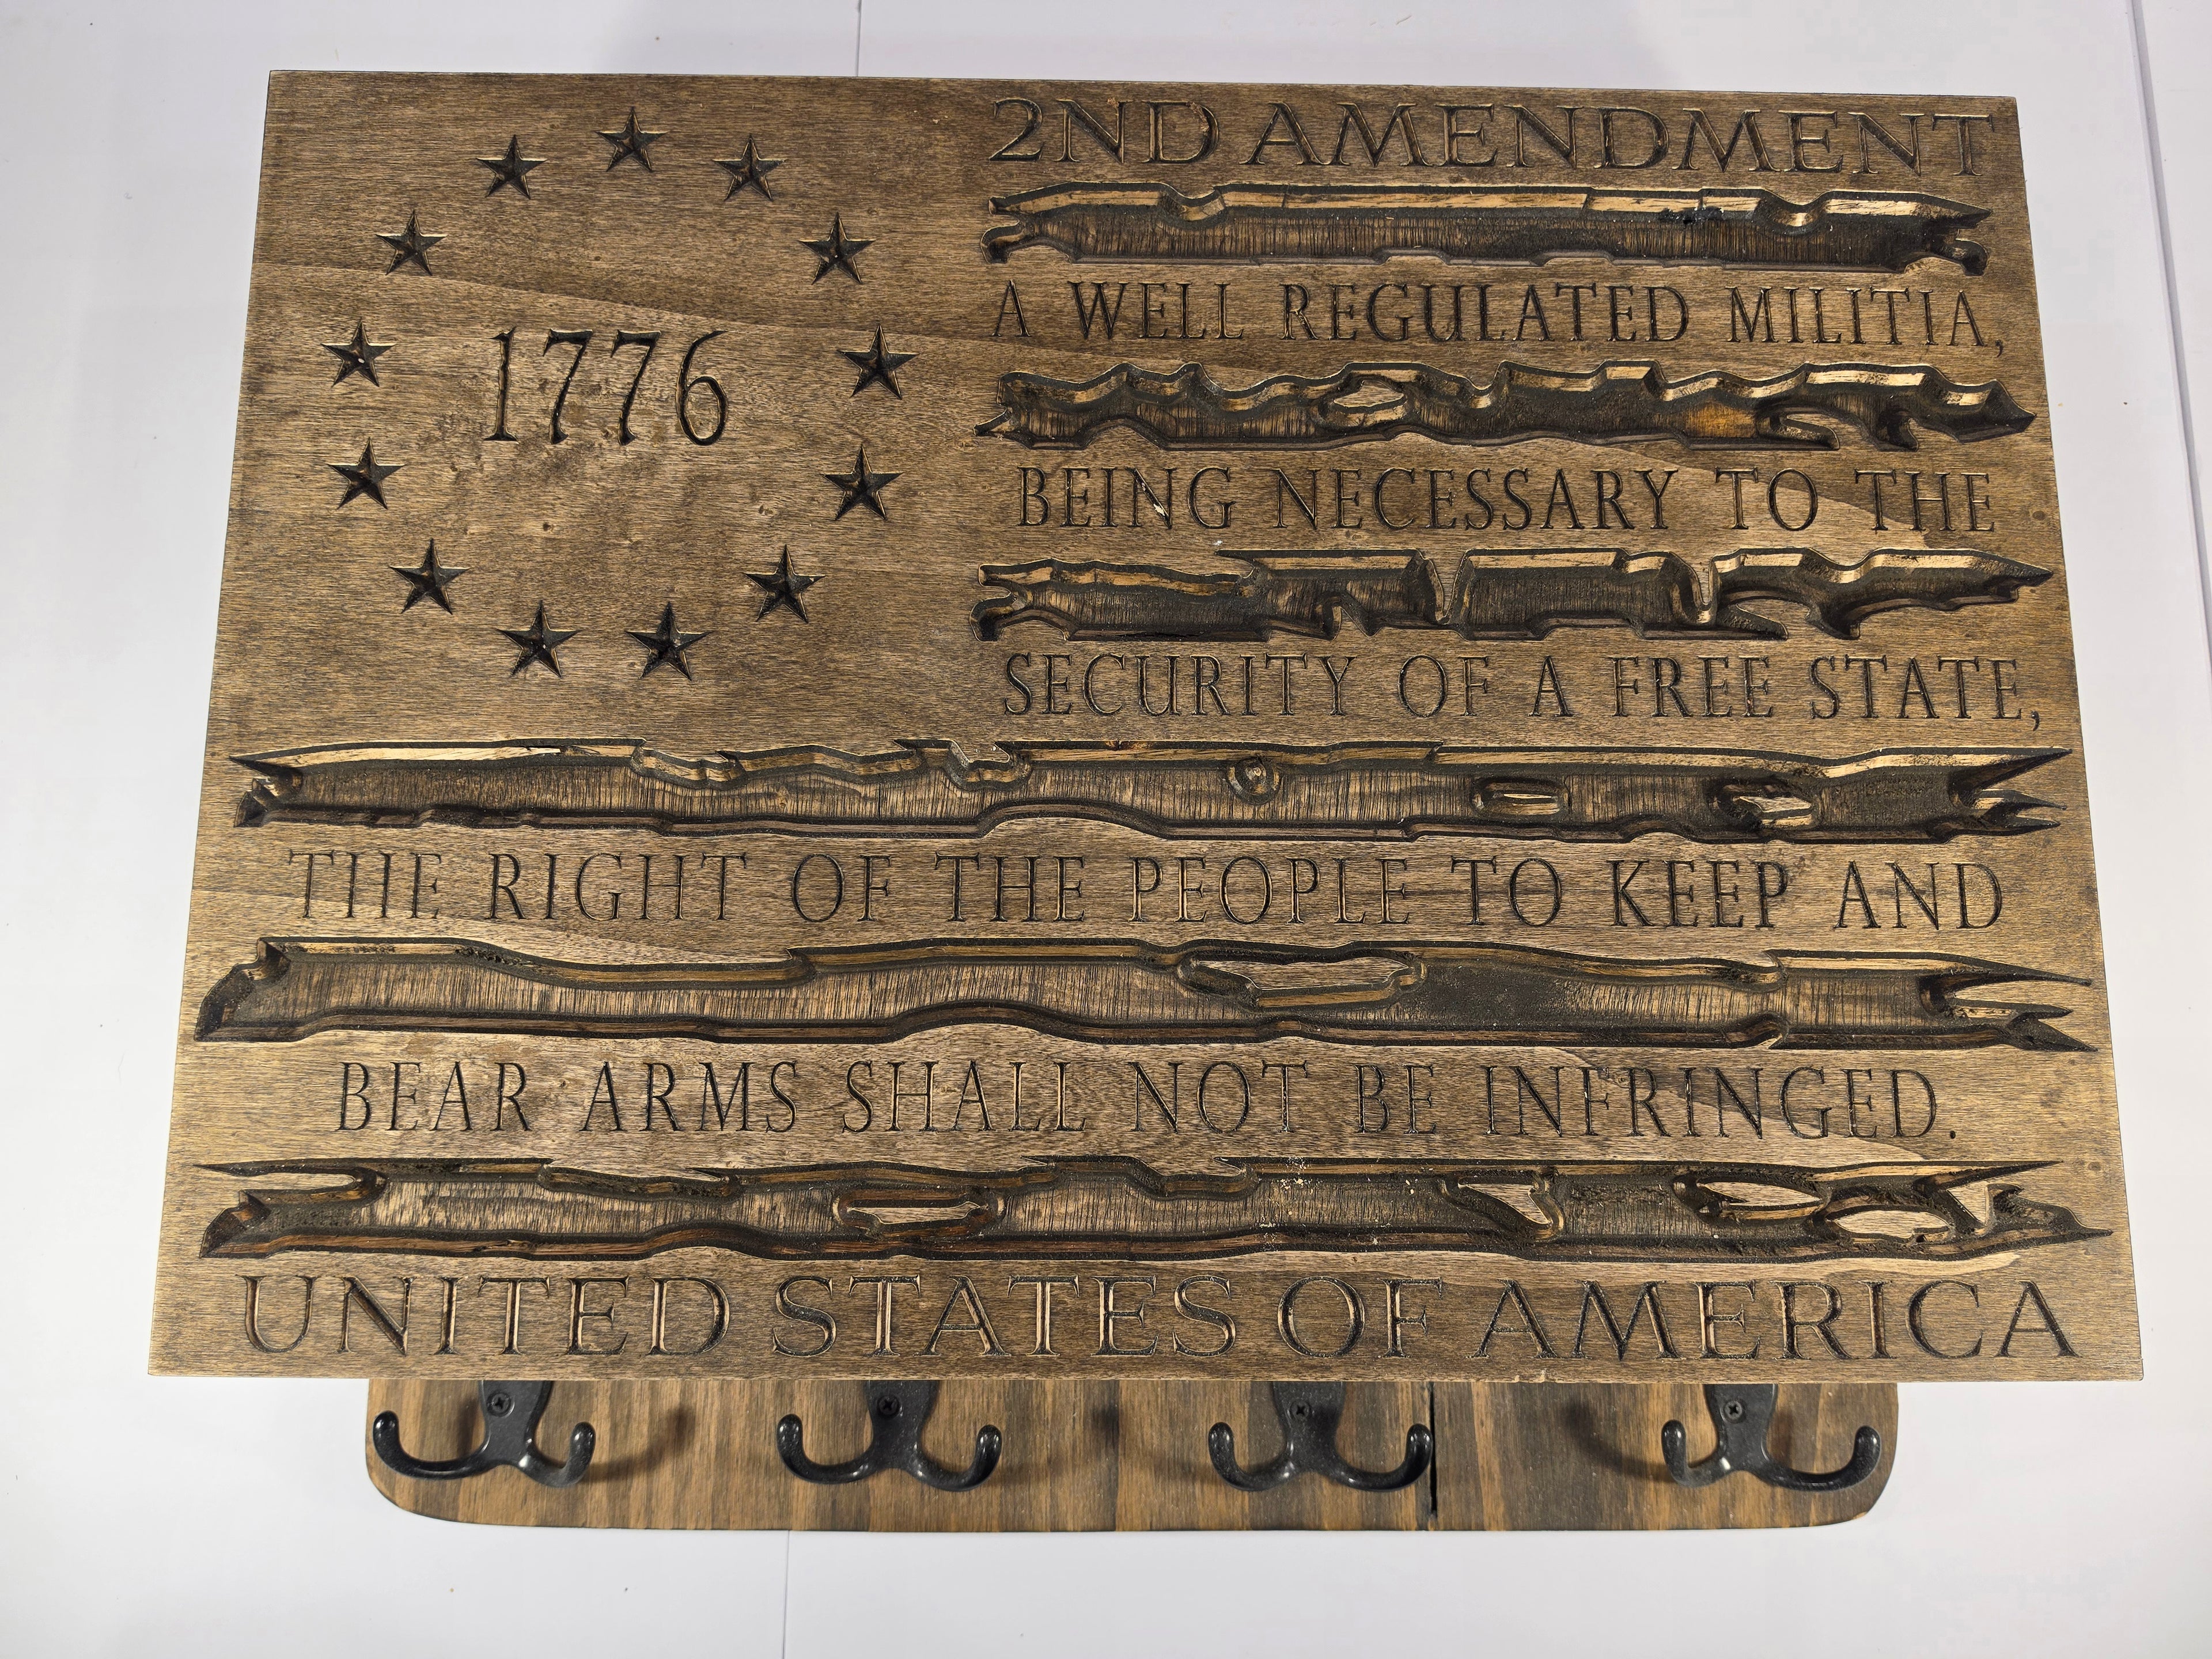 2ND AMENDMENT
A WELL REGULATED MILITIA,
1776
BEING NECESSARY TO THE
SECURITY OF A FREE STATE,
THE RIGHT OF THE PEOPLE TO KEEP AND
BEAR ARMS SHALL NOT BE INFRINGED.
UNITED STATES OF AMERICA